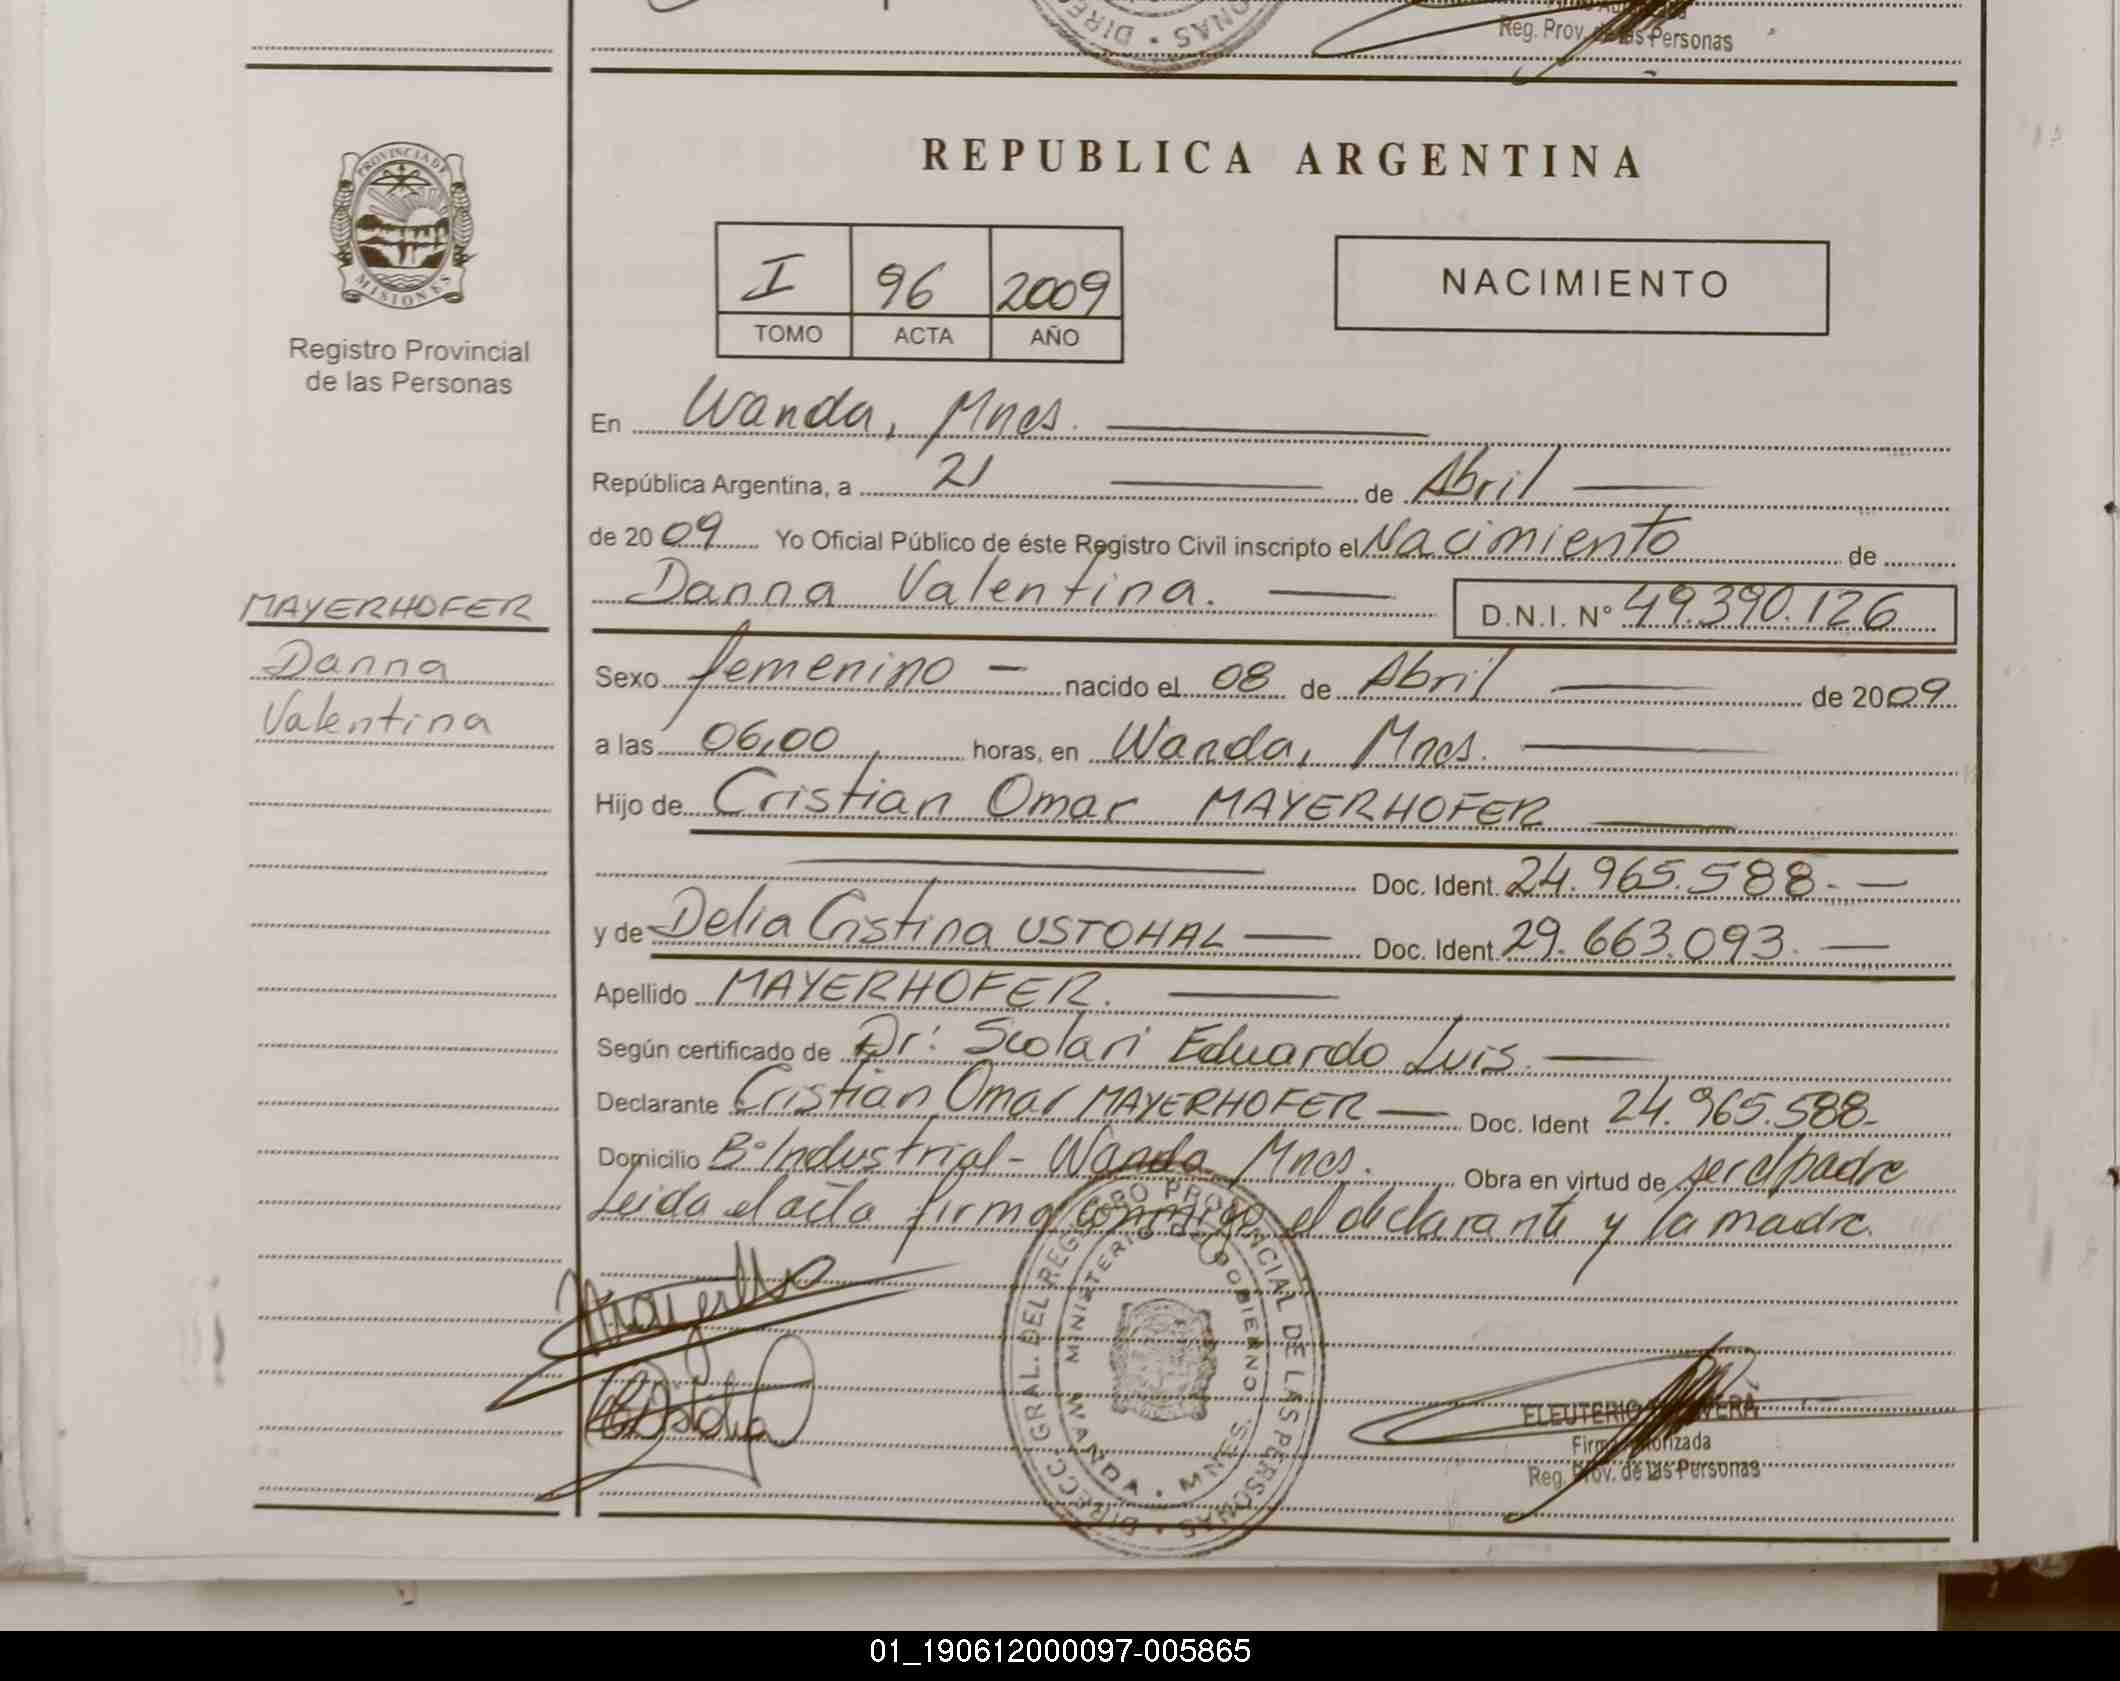 Reg. Prov. de las Personas
PROVINCIA DE
MISIONES
Registro Provincial
de las Personas
REPUBLICA ARGENTINA
I 96 2009
TOMO ACTA AÑO
NACIMIENTO
En Wanda, Mnes.
República Argentina, a 21 de Abril
de 2009 Yo Oficial Público de éste Registro Civil inscripto el Nacimiento de
Danna Valentina. D.N.I. Nº 49.390.126
MAYERHOFER
Danna
Valentina
Sexo femenino - nacido el 08 de Abril de 2009
a las 06,00 horas, en Wanda, Mnes.
Hijo de Cristian Omar MAYERHOFER
Doc. Ident. 24.965.588.-
y de Delia Cristina USTOHAL Doc. Ident. 29.663.093.
Apellido MAYERHOFER.
Según certificado de Dr: Scolari Eduardo Luis.
Declarante Cristian Omar MAYERHOFER Doc. Ident 24.965.588-
Domicilio Bº Industrial - Wanda, Mnes. Obra en virtud de ser el padre
Leida el acta firma conmigo el declarante y la madre.
DIRECC. GRAL. DEL REGISTRO PROVINCIAL DE LAS PERSONAS
MINISTERIO DE GOBIERNO
WANDA · MNES.
ELEUTERIO
Firma Autorizada
Reg. Prov. de las Personas
01_190612000097-005865